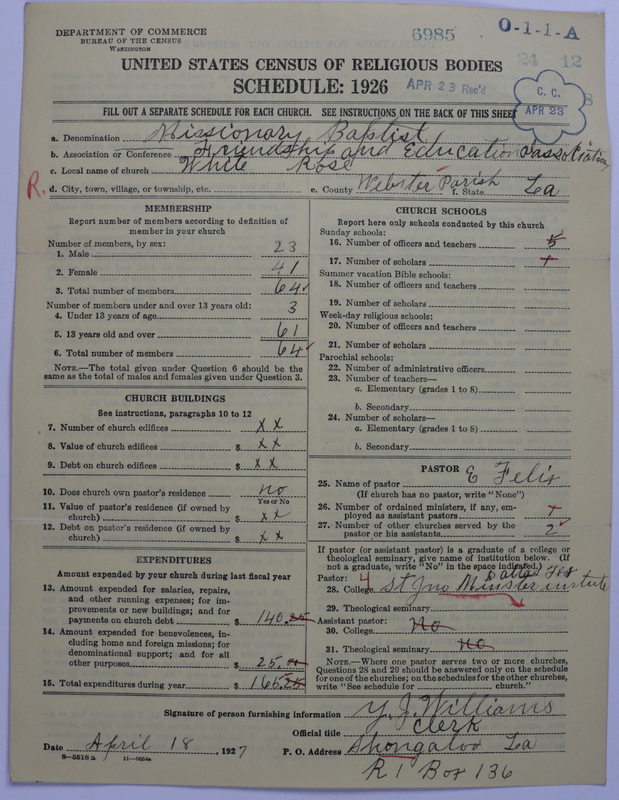 DEPARTMENT OF COMMERCE
BUREAU OF THE CENSUS
WASHINGTON
6985
O-1-1-A
24 12
UNITED STATES CENSUS OF RELIGIOUS BODIES
SCHEDULE: 1926
APR 23 Rec'd
C. C.
APR 23
FILL OUT A SEPARATE SCHEDULE FOR EACH CHURCH. SEE INSTRUCTIONS ON THE BACK OF THIS SHEET
a. Denomination Missionary Baptist
b. Association or Conference Friendship and Educational association
c. Local name of church White Rose
R. d. City, town, village, or township, etc. e. County Webster Parish f. State La
MEMBERSHIP
Report number of members according to definition of member in your church
Number of members, by sex:
1. Male 23
2. Female 41
3. Total number of members 64
Number of members under and over 13 years old:
4. Under 13 years of age 3
5. 13 years old and over 61
6. Total number of members 64
NOTE.—The total given under Question 6 should be the
same as the total of males and females given under Question 3.
CHURCH BUILDINGS
See instructions, paragraphs 10 to 12
7. Number of church edifices x x
8. Value of church edifices $ x x
9. Debt on church edifices $ x x
10. Does church own pastor's residence no
Yes or No
11. Value of pastor's residence (if owned by
church) $ x x
12. Debt on pastor's residence (if owned by
church) $ x x
EXPENDITURES
Amount expended by your church during last fiscal year
13. Amount expended for salaries, repairs,
and other running expenses; for im-
provements or new buildings; and for
payments on church debt $ 140.
14. Amount expended for benevolences, in-
cluding home and foreign missions; for
denominational support; and for all
other purposes $ 25.
15. Total expenditures during year $ 165.25
CHURCH SCHOOLS
Report here only schools conducted by this church
Sunday schools:
16. Number of officers and teachers 5
17. Number of scholars
Summer vacation Bible schools:
18. Number of officers and teachers
19. Number of scholars
Week-day religious schools:
20. Number of officers and teachers
21. Number of scholars
Parochial schools:
22. Number of administrative officers
23. Number of teachers—
a. Elementary (grades 1 to 8)
b. Secondary
24. Number of scholars—
a. Elementary (grades 1 to 8)
b. Secondary
PASTOR
25. Name of pastor E Felix
(If church has no pastor, write "None")
26. Number of ordained ministers, if any, em-
ployed as assistant pastors
27. Number of other churches served by the
pastor or his assistants 2
If pastor (or assistant pastor) is a graduate of a college or
theological seminary, give name of institution below. (If
not a graduate, write "No" in the space indicated.)
Pastor: 4
28. College St Jno Minister
29. Theological seminary
Assistant pastor:
30. College No
31. Theological seminary No
NOTE.—Where one pastor serves two or more churches,
Questions 28 and 29 should be answered only on the schedule
for one of the churches; on the schedules for the other churches,
write "See schedule for church."
Signature of person furnishing information Y. J. Williams
Official title Clerk
Date April 18, 1927 P. O. Address Shongaloo La
8-5518a 11-9554a
R 1 Box 136